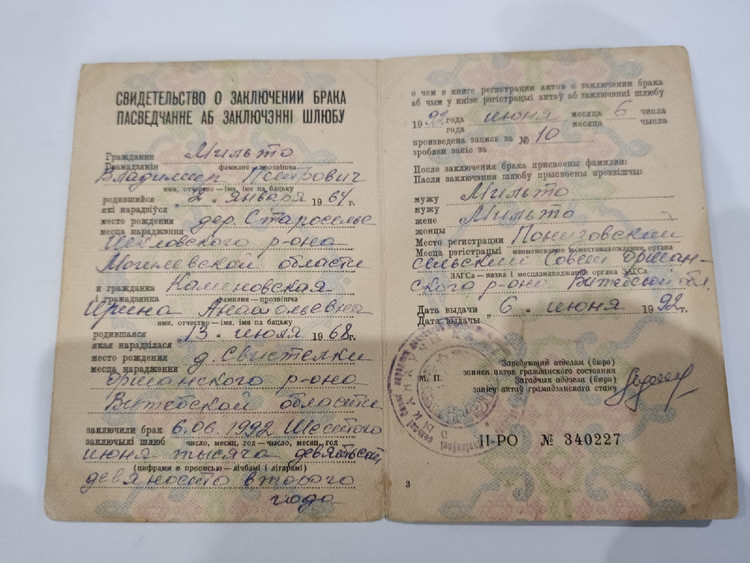 СВИДЕТЕЛЬСТВО О ЗАКЛЮЧЕНИИ БРАКА
ПАСВЕДЧАННЕ АБ ЗАКЛЮЧЭННІ ШЛЮБУ
Гражданин Мильто
Грамадзянін фамилия—прозвішча
Владимир Петрович
имя, отчество—імя, імя па бацьку
родившийся 2 января 1964 г.
які нарадзіўся
место рождения дер. Староселье
месца нараджэння
Шкловского р-она
Могилевской области
и гражданка Калиновская
і грамадзянка фамилия—прозвішча
Ирина Анатольевна
имя, отчество—імя, імя па бацьку
родившаяся 13 июля 1968 г.
якая нарадзілася
место рождения д. Свистелки
месца нараджэння
Оршанского р-она
Витебской области
заключили брак 6.06.1992 Шестого
заключылі шлюб число, месяц, год—число, месяц, год
июня тысяча девятьсот
(цифрами и прописью—лічбамі і літарамі)
девяносто второго
года
о чем в книге регистрации актов о заключении брака
аб чым у кнізе рэгістрацыі актаў аб заключэнні шлюбу
1992 года июня месяца 6 числа
года месяца чысла
произведена запись за № 10
зроблен запіс за
После заключения брака присвоены фамилии:
Пасля заключэння шлюбу прысвоены прозвішчы:
мужу Мильто
мужу
жене Мильто
жонцы
Место регистрации Понизовский
Месца рэгістрацыі наименование и местонахождение органа
сельский Совет Оршан-
ЗАГСа—назва і месцазнаходжанне органа ЗАГСа
ского р-она Витебской обл.
Дата выдачи 6 июня 1992 г.
Дата выдачы
М. П.
Заведующий отделом (бюро)
записи актов гражданского состояния
Загадчык аддзела (бюро)
запісу актаў грамадзянскага стану
II-РО № 340227
3